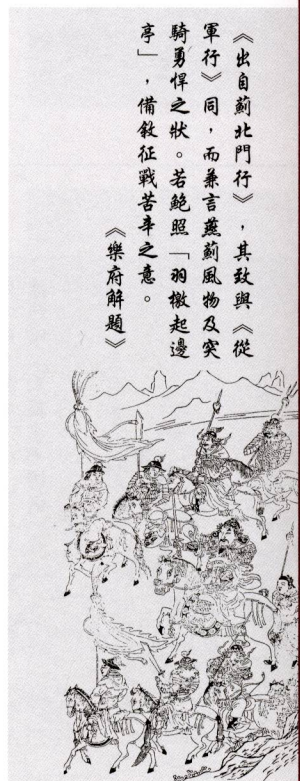 《出自薊北門行》，其致與《從
軍行》同，而兼言燕薊風物及突
騎勇悍之狀。若鮑照「羽檄起邊
亭」，備敘征戰苦辛之意。
《樂府解題》